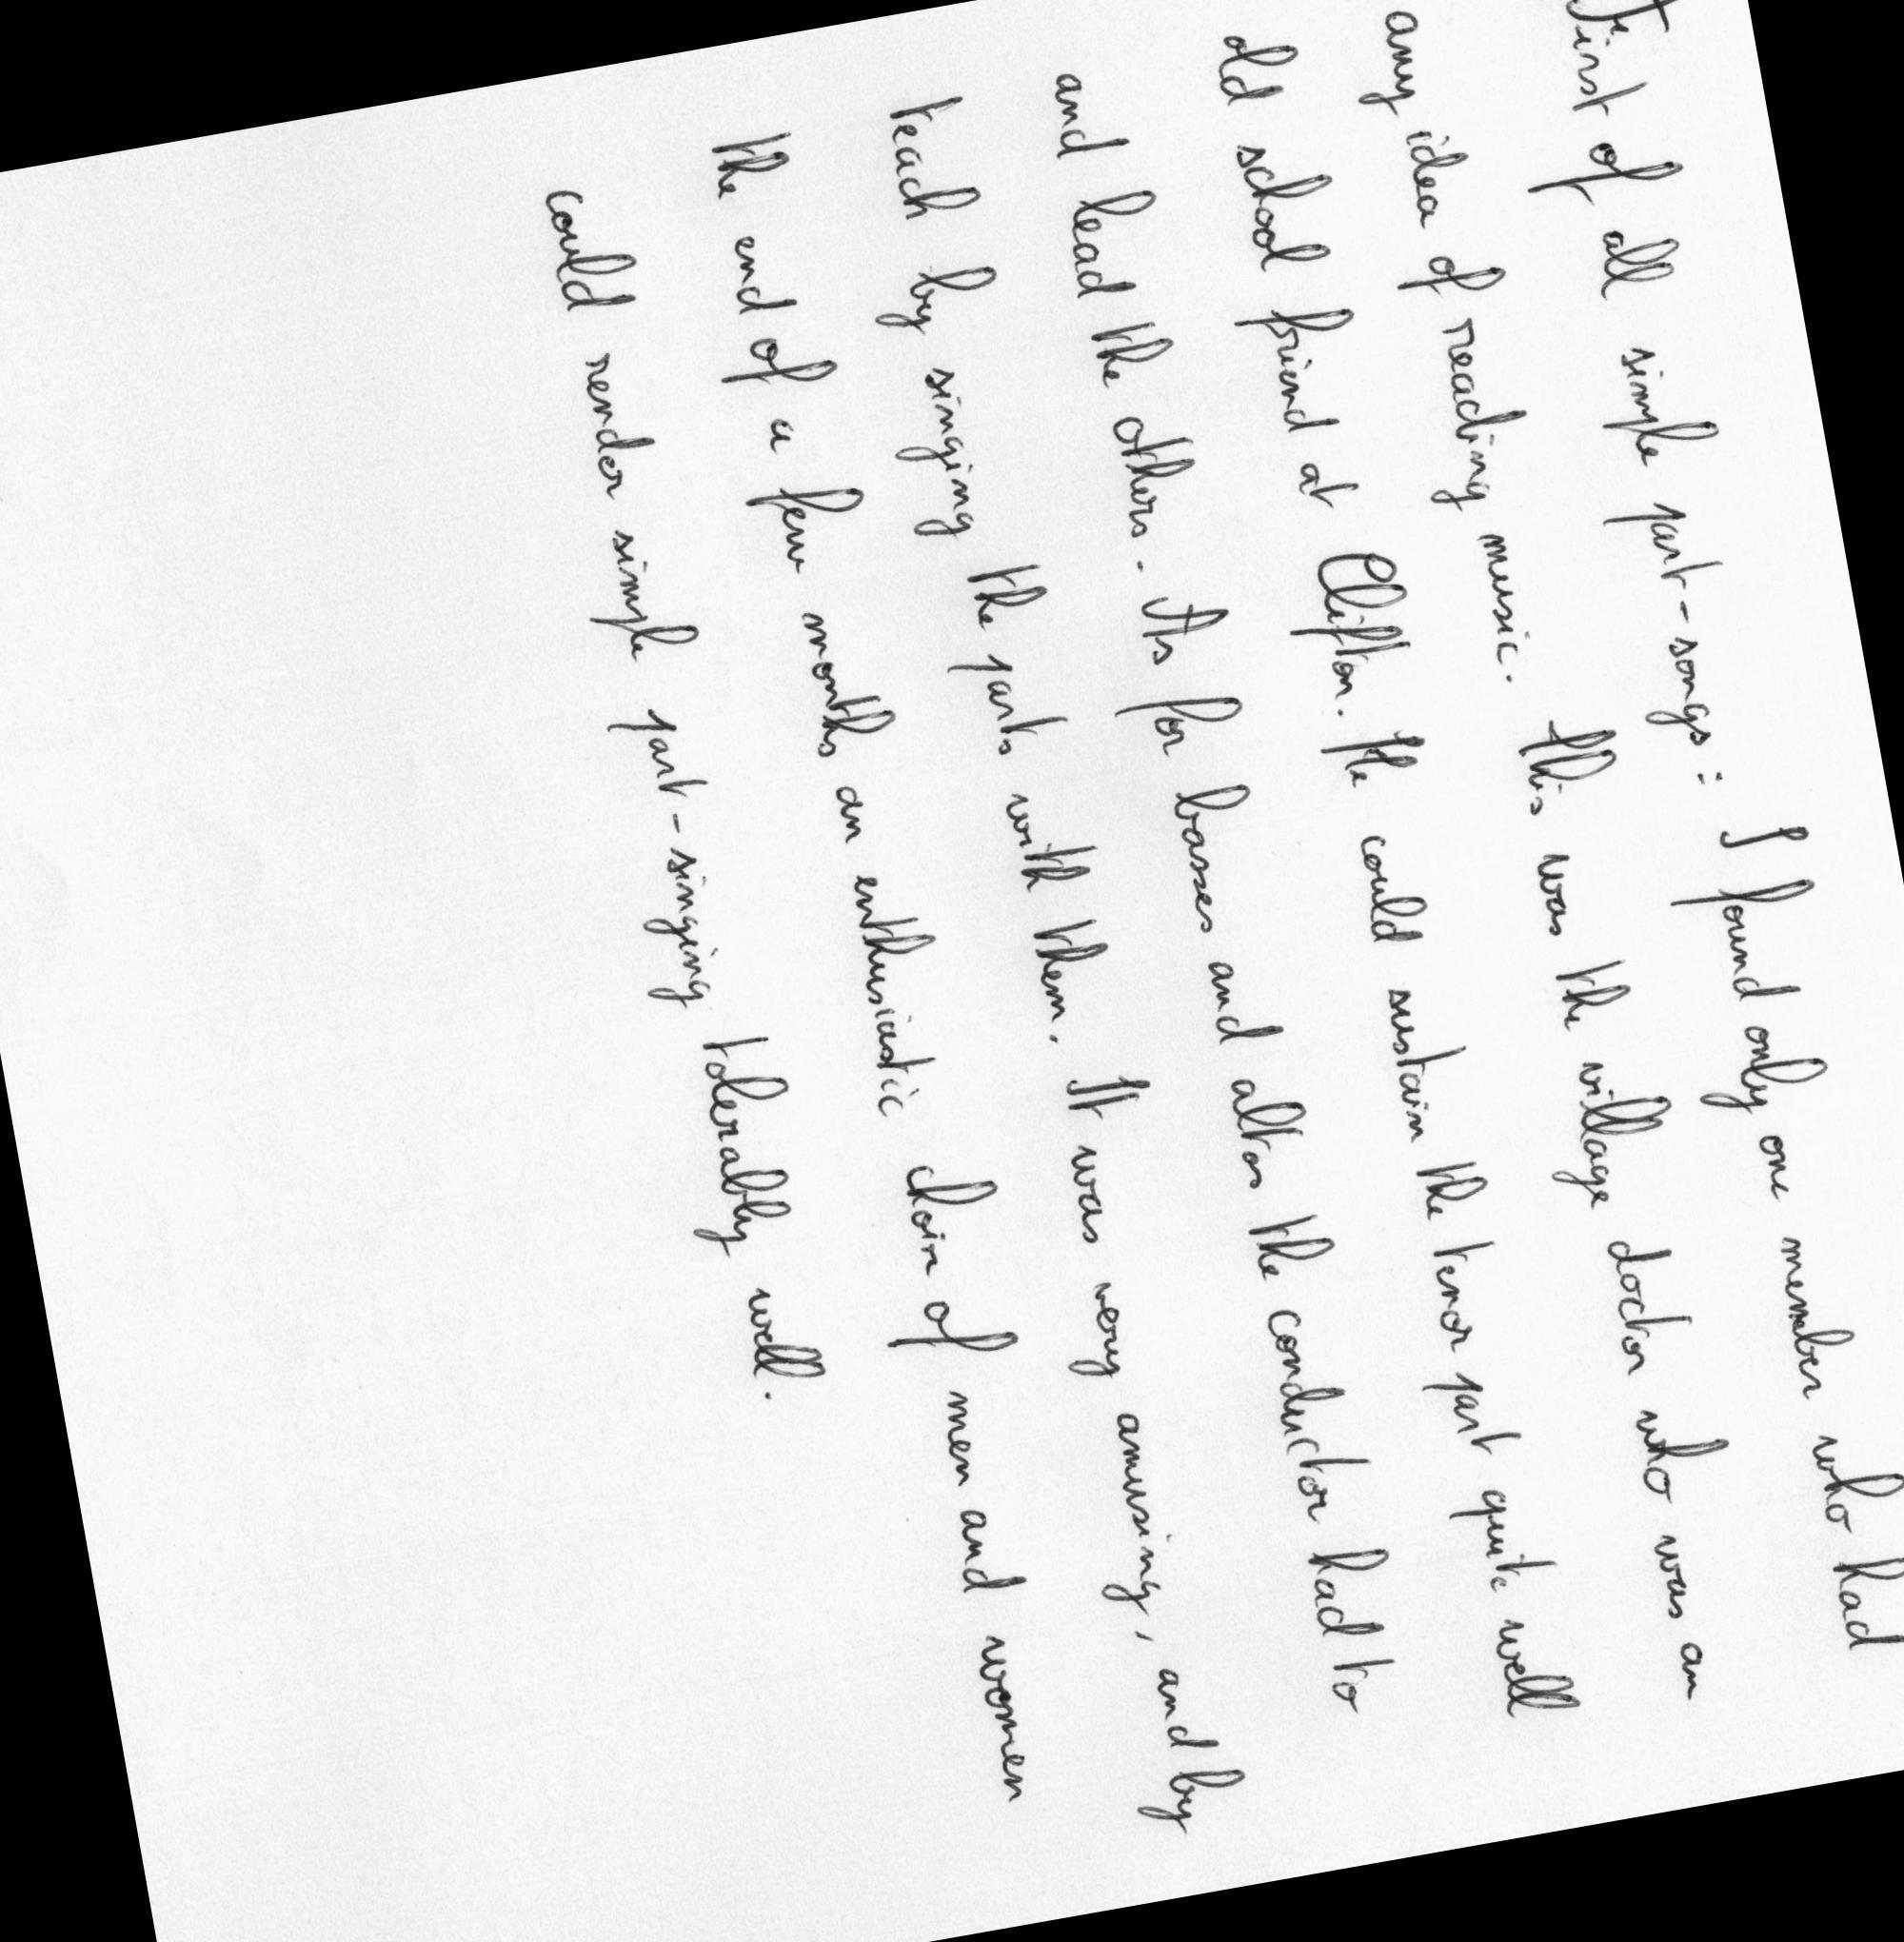 First of all simple part-songs: I found only one member who had
any idea of reading music. This was the village doctor who was an
old school friend at Clifton. He could sustain the tenor part quite well
and lead the others. As for basses and altos the conductor had to
teach by singing the parts with them. It was very amusing, and by
the end of a few months an enthusiastic choir of men and women
could render simple part-singing tolerably well.